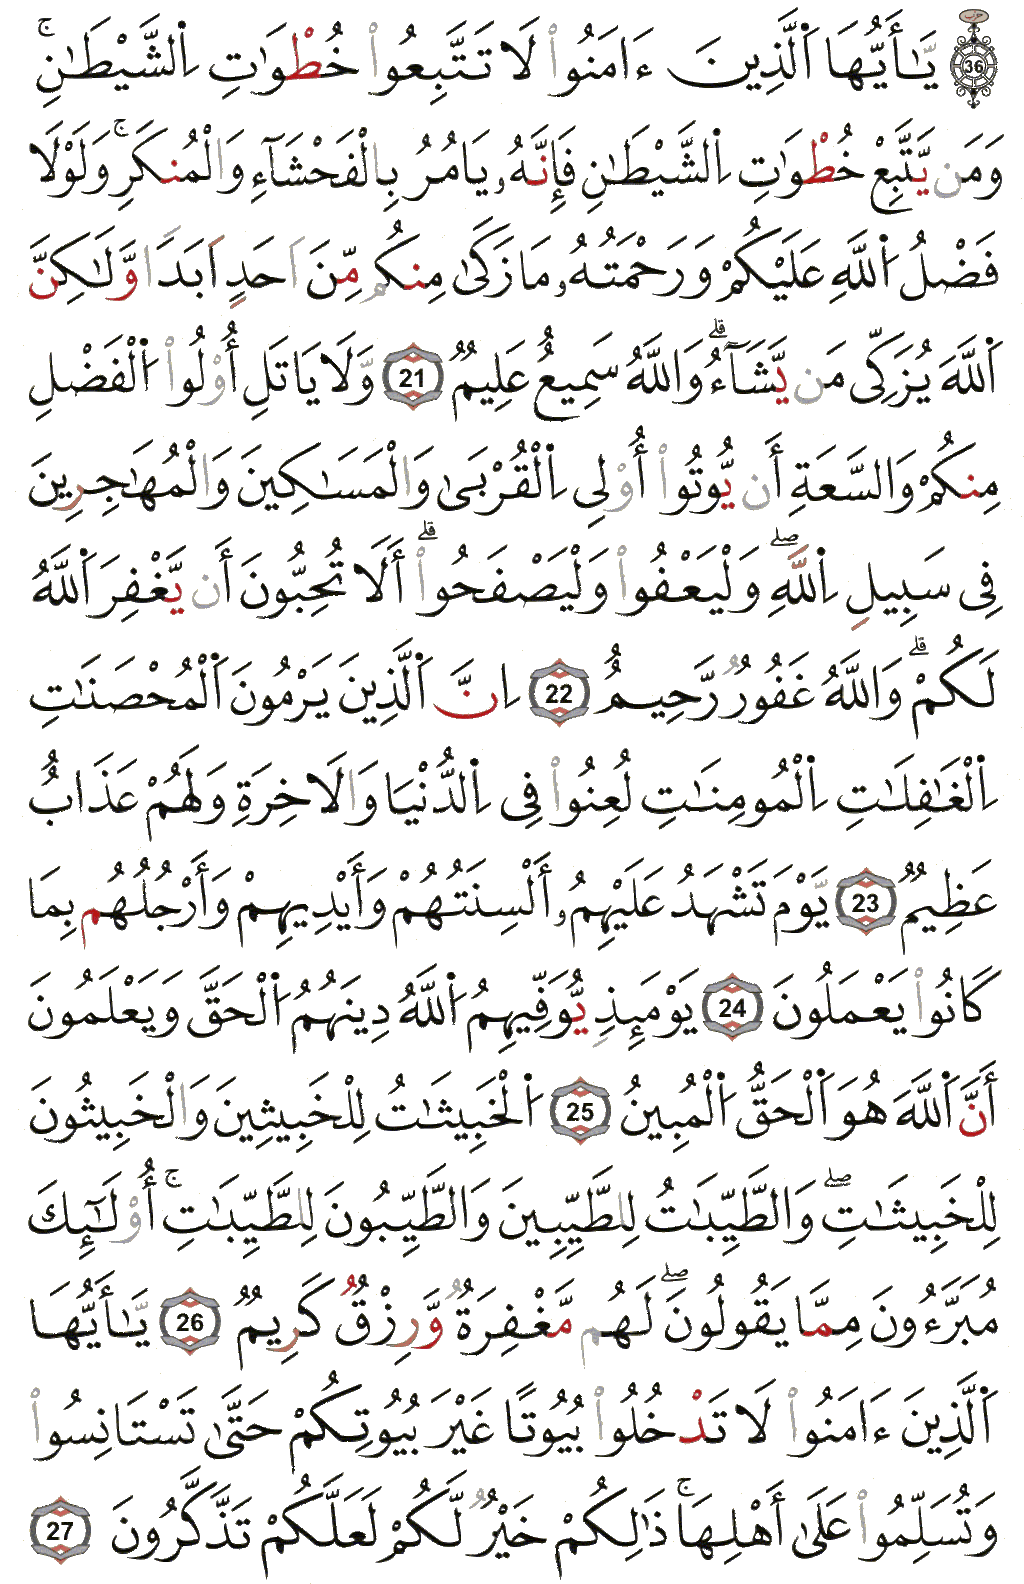 36 يَٰٓأَيُّهَا اَ۬لذِينَ ءَامَنُواْ لَا تَتَّبِعُواْ خُطْوَٰتِ اِ۬لشَّيْطَٰنِۚ
وَمَنْ يَّتَّبِعْ خُطْوَٰتِ اِ۬لشَّيْطَٰنِ فَإِنَّهُۥ يَامُرُ بِالْفَحْشَآءِ وَالْمُنكَرِۚ وَلَوْلَا
فَضْلُ اُ۬للَّهِ عَلَيْكُمْ وَرَحْمَتُهُۥ مَا زَكَىٰ مِنكُم مِّنَ اَحَدٍ اَبَداٗ وَلَٰكِنَّ
اَ۬للَّهَ يُزَكِّى مَنْ يَّشَآءُۗ وَاللَّهُ سَمِيعٌ عَلِيمٌ 21 وَلَا يَاتَلِ أُوْلُواْ اُ۬لْفَضْلِ
مِنكُمْ وَالسَّعَةِ أَنْ يُّوتُواْ أُوْلِى اِ۬لْقُرْبَىٰ وَالْمَسَٰكِينَ وَالْمُهَٰجِرِينَ
فِى سَبِيلِ اِ۬للَّهِۖ وَلْيَعْفُواْ وَلْيَصْفَحُواْۗ أَلَا تُحِبُّونَ أَنْ يَّغْفِرَ اَ۬للَّهُ
لَكُمْۗ وَاللَّهُ غَفُورٌ رَّحِيمٌ 22 اِنَّ اَ۬لذِينَ يَرْمُونَ اَ۬لْمُحْصَنَٰتِ
اِ۬لْغَٰفِلَٰتِ اِ۬لْمُومِنَٰتِ لُعِنُواْ فِى اِ۬لدُّنْيَا وَالَاخِرَةِ وَلَهُمْ عَذَابٌ
عَظِيمٌ 23 يَوْمَ تَشْهَدُ عَلَيْهِمُۥ أَلْسِنَتُهُمْ وَأَيْدِيهِمْ وَأَرْجُلُهُم بِمَا
كَانُواْ يَعْمَلُونَ 24 يَوْمَئِذٍ يُّوَفِّيهِمُ اُ۬للَّهُ دِينَهُمُ اُ۬لْحَقَّ وَيَعْلَمُونَ
أَنَّ اَ۬للَّهَ هُوَ اَ۬لْحَقُّ اُ۬لْمُبِينُ 25 اُ۬لْخَبِيثَٰتُ لِلْخَبِيثِينَ وَالْخَبِيثُونَ
لِلْخَبِيثَٰتِۖ وَالطَّيِّبَٰتُ لِلطَّيِّبِينَ وَالطَّيِّبُونَ لِلطَّيِّبَٰتِۚ أُوْلَٰٓئِكَ
مُبَرَّءُونَ مِمَّا يَقُولُونَۖ لَهُم مَّغْفِرَةٌ وَرِزْقٌ كَرِيمٌ 26 يَٰٓأَيُّهَا
اَ۬لذِينَ ءَامَنُواْ لَا تَدْخُلُواْ بُيُوتاً غَيْرَ بُيُوتِكُمْ حَتَّىٰ تَسْتَانِسُواْ
وَتُسَلِّمُواْ عَلَىٰ أَهْلِهَاۚ ذَٰلِكُمْ خَيْرٌ لَّكُمْ لَعَلَّكُمْ تَذَّكَّرُونَ 27